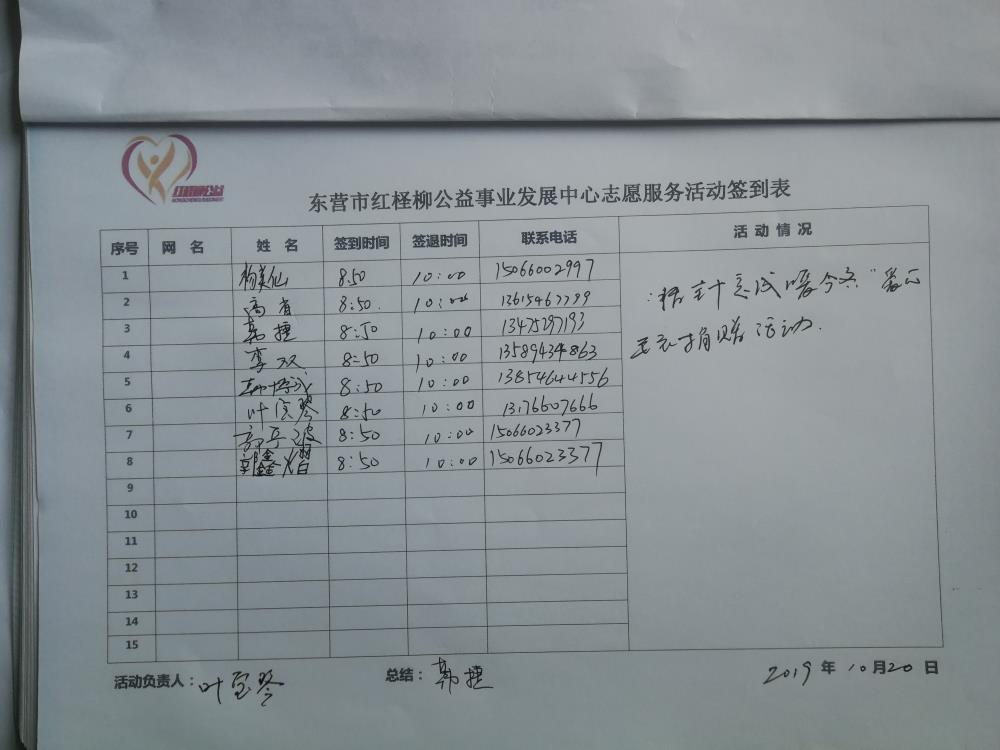 红柽柳公益
东营市红柽柳公益事业发展中心志愿服务活动签到表
序号 网 名 姓 名 签到时间 签退时间 联系电话 活 动 情 况
1 杨美仙 8:50 10:00 15066002997
2 高省 8:50 10:00 13615467799
3 韩捷 8:50 10:00 13475297193
4 李双 8:50 10:00 13589434863
5 8:50 10:00 13854644556
6 叶宝琴 8:50 10:00 13176607666
7 8:50 10:00 15066023377
8 郭鑫熠 8:50 10:00 15066023377
9
10
11
12
13
14
15
暖今冬"爱心
衣捐赠活动.
活动负责人: 叶宝琴 总结: 韩捷 2019 年 10 月 20 日